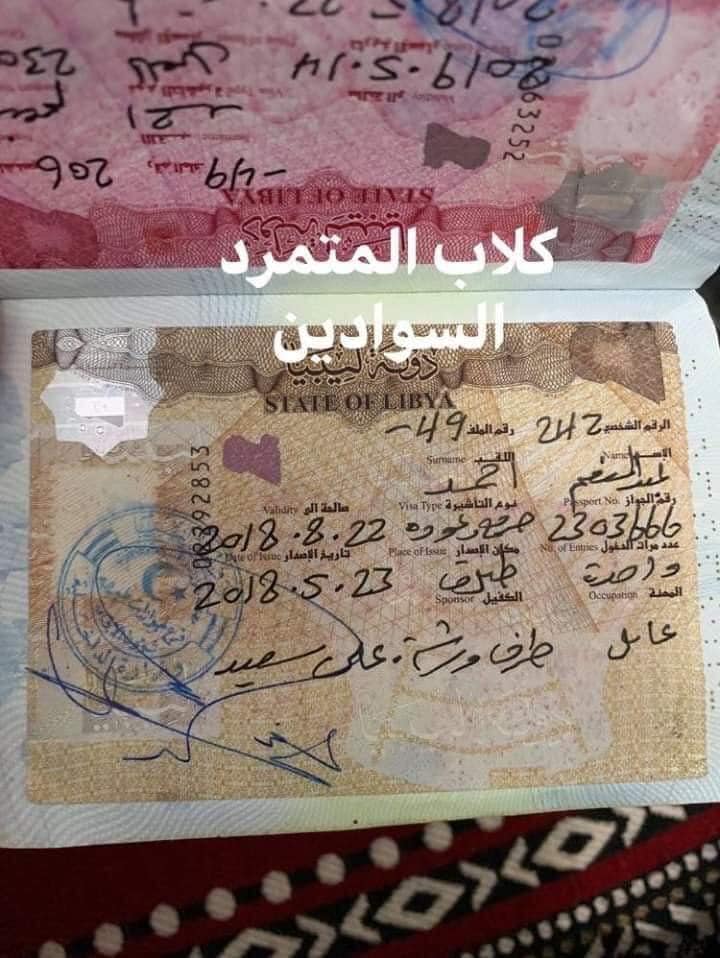 2019.5.14
230
206
49-
STATE OF LIBYA
كلاب المتمرد
السوادين
دولة ليبيا
STATE OF LIBYA
الرقم الشخصي 242 رقم الملف 49-
الإسم Name اللقب Surname
عبد المنعم احمد
رقم الجواز Passport No. نوم التأشيرة Visa Type صالحة الى Validity
2303666 خروج وعودة 2018.8.22
عدد مرات الدخول No. of Entries مكان الإصدار Place of Issue تاريخ الإصدار Date of Issue
واحدة طبرق 2018.5.23
المهنة Occupation الكفيل Sponsor
عامل طرف ورشة. على سعيد